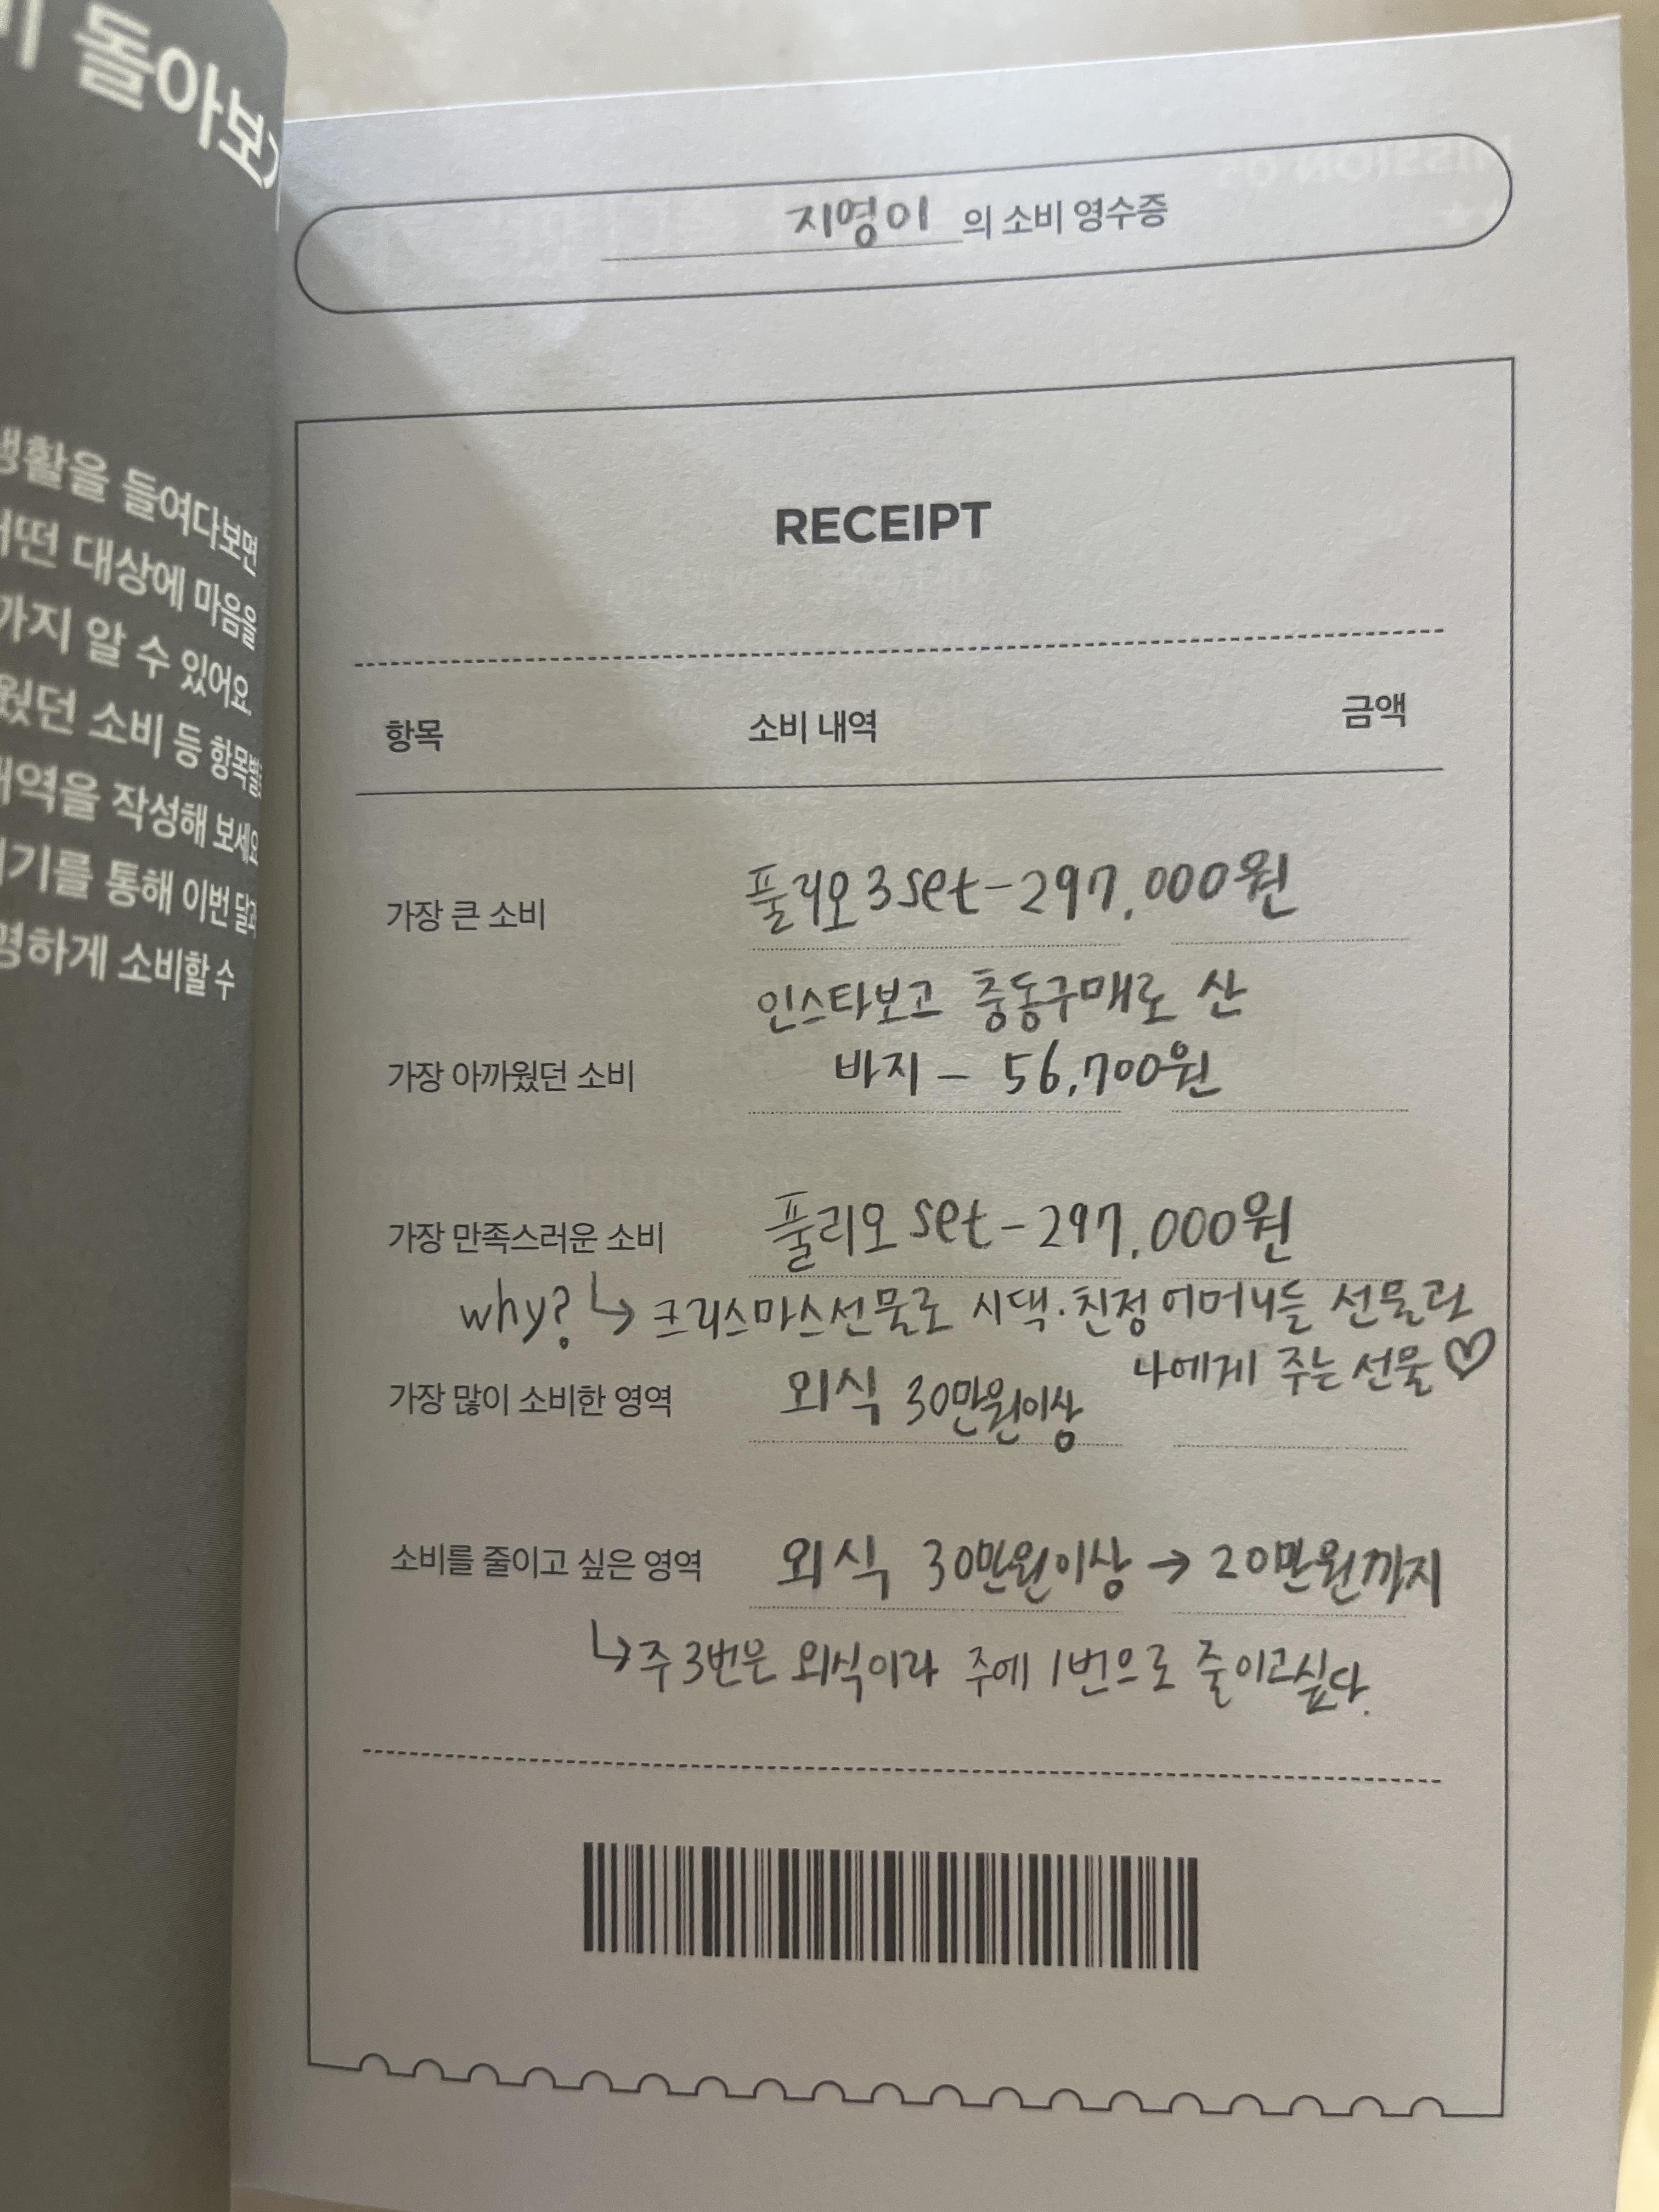 돌아보기
생활을 들여다보면
어떤 대상에 마음을
까지 알 수 있어요.
웠던 소비 등 항목별
내역을 작성해 보세요
기를 통해 이번 달
명하게 소비할 수
지영이의 소비 영수증
RECEIPT
항목 소비 내역 금액
가장 큰 소비 풀리오 3set-297,000원
인스타보고 충동구매로 산
가장 아까웠던 소비 바지 - 56,700원
가장 만족스러운 소비 풀리오 set-297,000원
why? ↳ 크리스마스선물로 시댁·친정 어머니들 선물과
나에게 주는 선물♡
가장 많이 소비한 영역 외식 30만원이상
소비를 줄이고 싶은 영역 외식 30만원이상 → 20만원까지
↳ 주 3번은 외식이라 주에 1번으로 줄이고싶다.